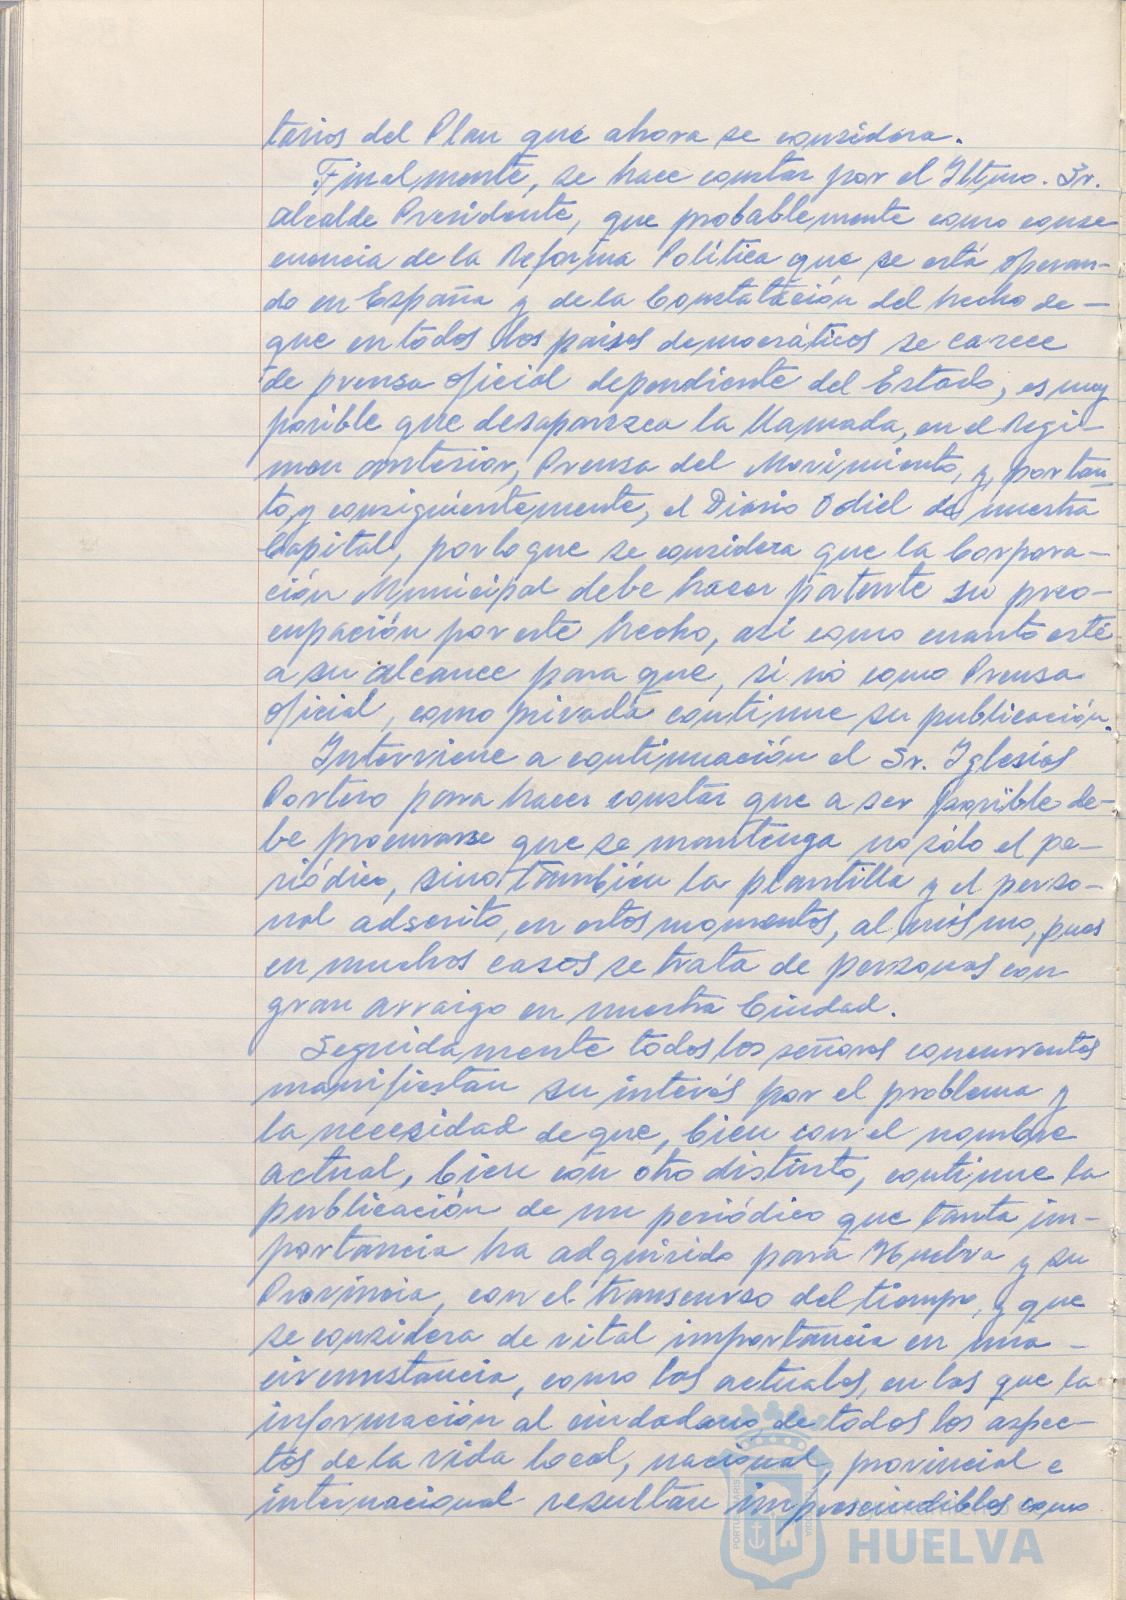 tarios del Plan que ahora se considera.
Finalmente, se hace constar por el Iltmo. Sr.
Alcalde Presidente, que probablemente como conse
cuencia de la Reforma Política que se está operan-
do en España y de la Constatación del hecho de-
que en todos los paises democráticos se carece
de prensa oficial dependiente del Estado, es muy
posible que desaparezca la llamada, en el Régi-
men anterior, Prensa del Movimiento, y, por tan-
to, y consiguientemente, el Diario Odiel de nuestra
Capital, por lo que se considera que la Corpora-
ción Municipal debe hacer patente su preo-
cupación por este hecho, así como cuanto esté
a su alcance para que, si no como Prensa
oficial, como privada continue su publicación.
Interviene a continuación el Sr. Iglesias
Portero para hacer constar que a ser posible de-
be procurarse que se mantenga no sólo el pe-
riódico, sino también la plantilla y el perso-
nal adscrito, en estos momentos, al mismo, pues
en muchos casos se trata de personas con
gran arraigo en nuestra Ciudad.
Seguidamente todos los señores concurrentes
manifiestan su interés por el problema y
la necesidad de que, bien con el nombre
actual, bien con otro distinto, continue la
publicación de un periódico que tanta im-
portancia ha adquirido para Huelva y su
Provincia, con el transcurso del tiempo, y que
se considera de vital importancia en una-
circunstancia, como las actuales, en las que la
información al ciudadano, de todos los aspec-
tos de la vida local, nacional, provincial e
internacional resultan imprescindibles como
HUELVA